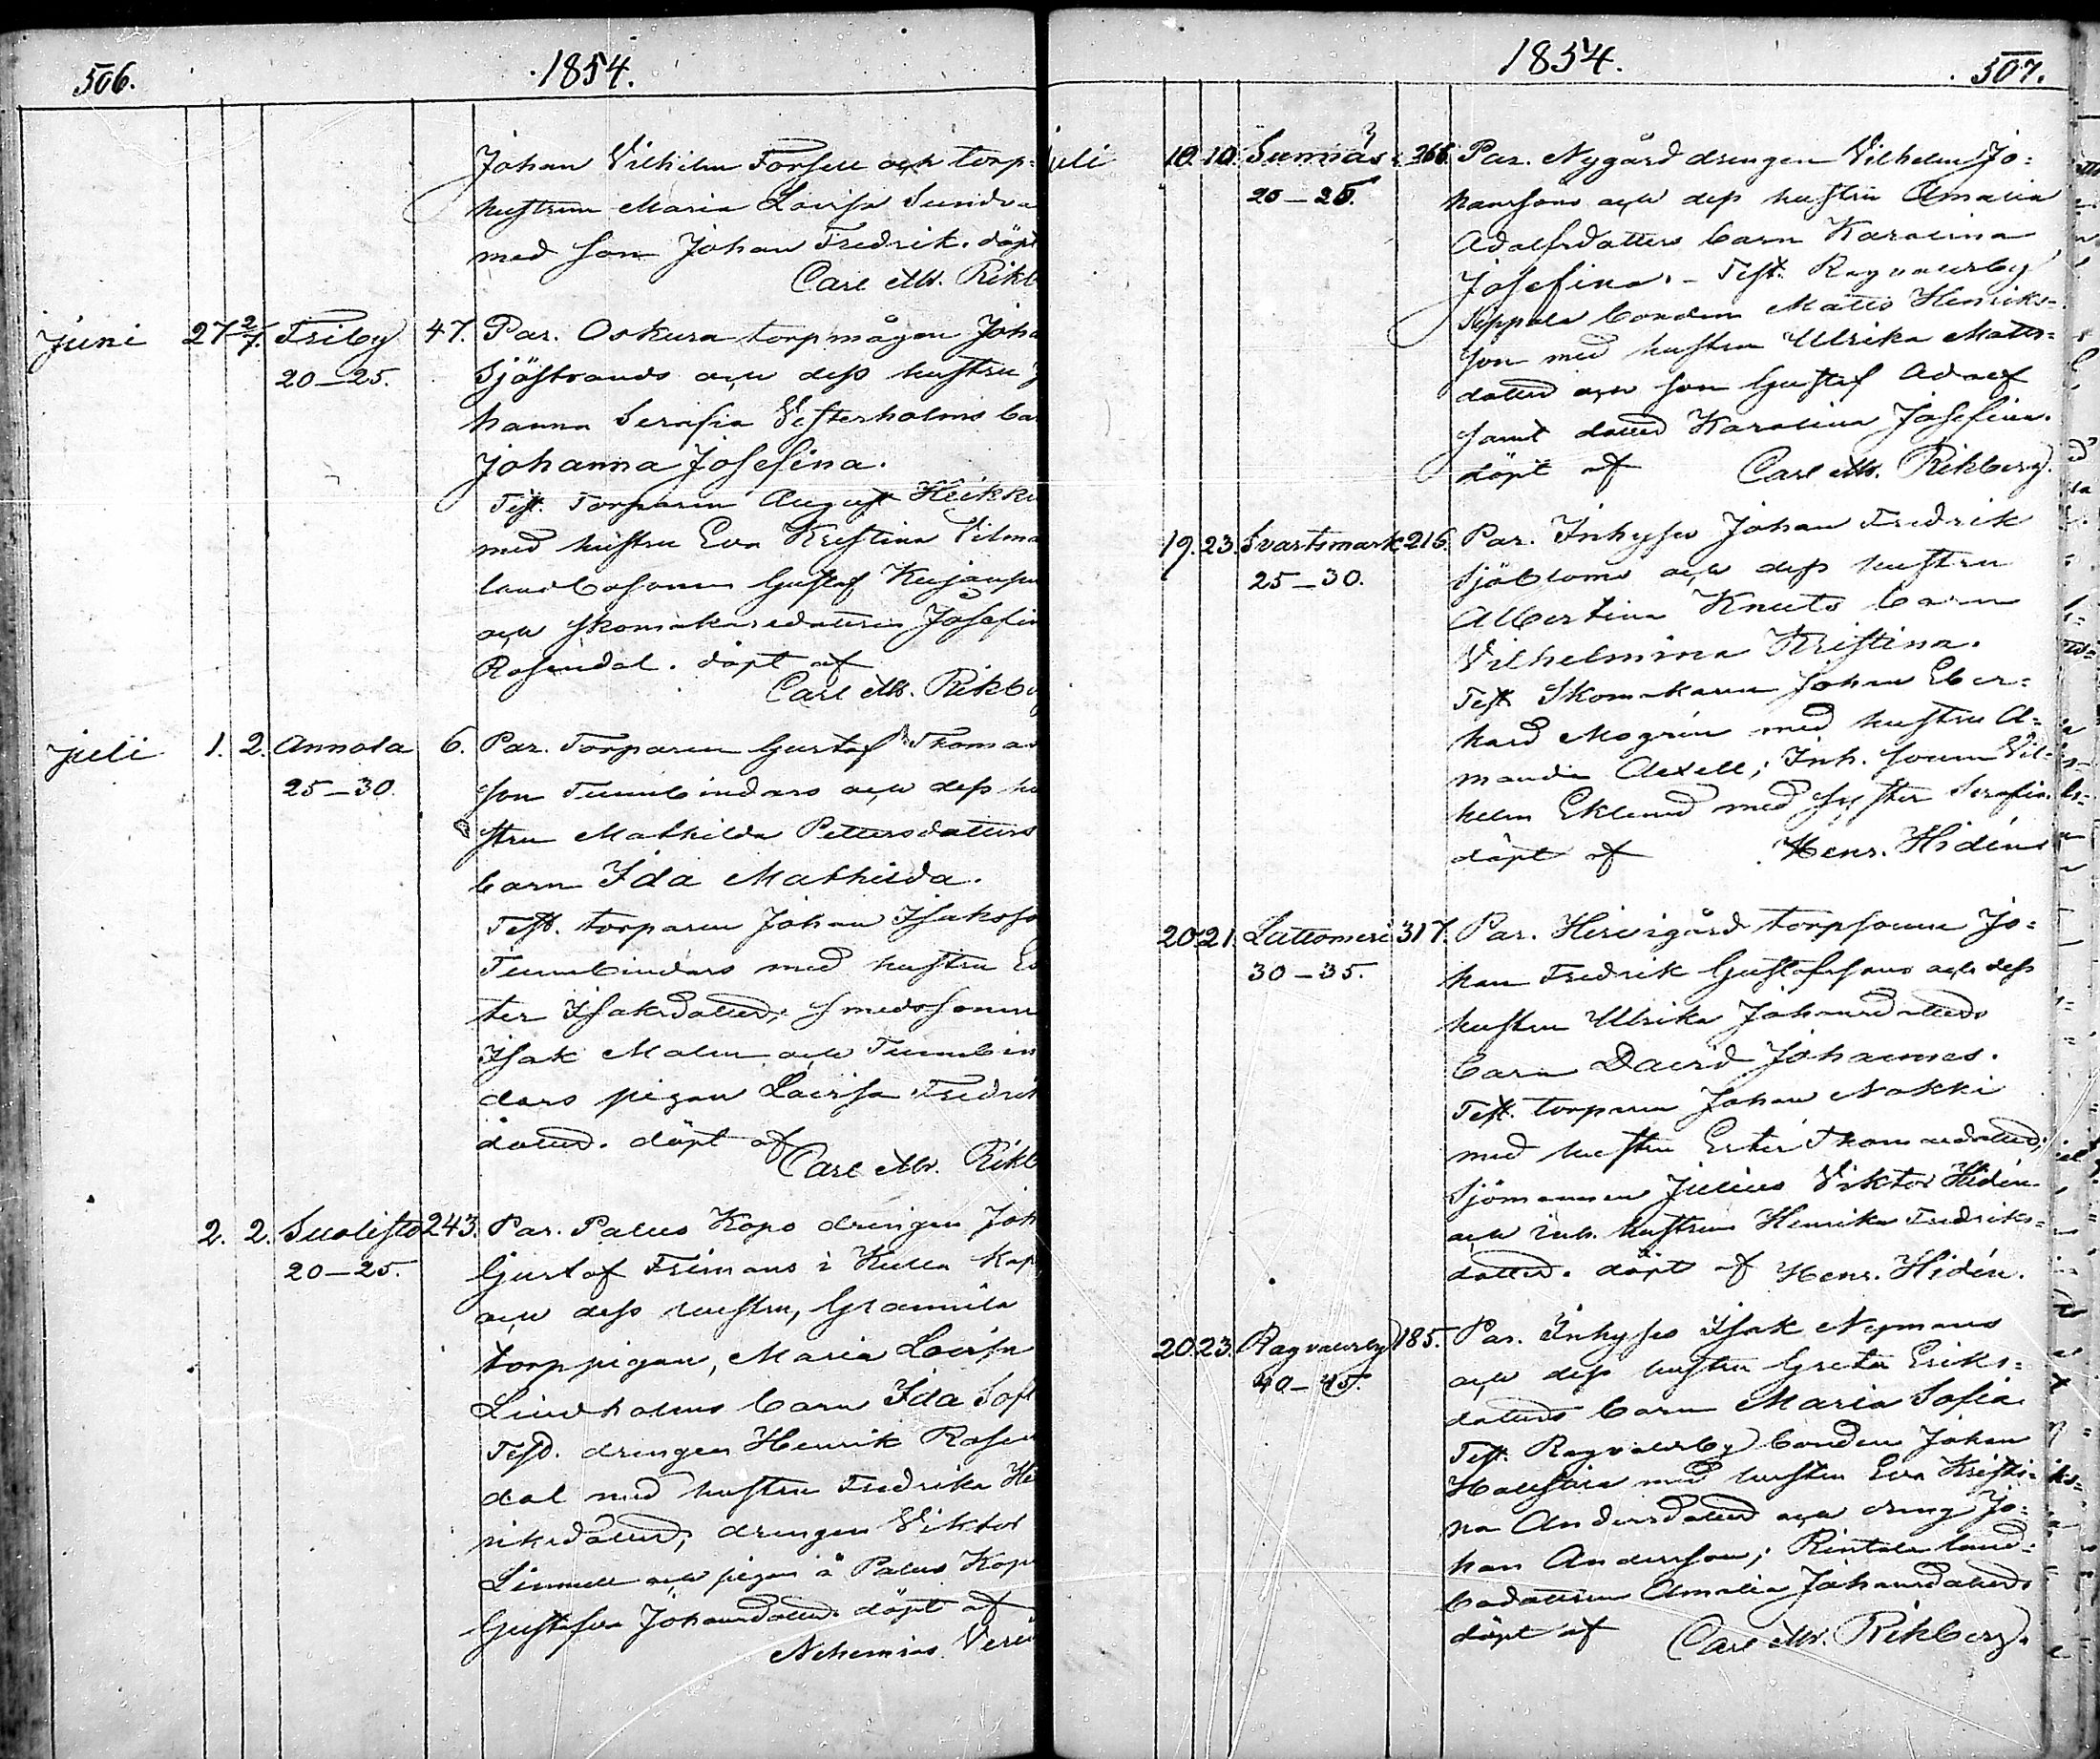 506.
1854.
Johan Vilhelm Forsell och torp=
hustrun Maria Lovisa
med son Johan Fredrik. döpt
Carl M.
Juni 27 2/7. Friby 47. Par. Oskura torpmågen
20–25. Sjöstrands och dess hustru
hanna Serafia Vesterholms
Johanna Josefina.
Test. Torparen August
med hustru Eva Kristina
landbosonen Gustaf
och skomakaredottren
Rosendal. döpt af
Carl M.
Juli 1. 2. Annola 6. Par. Torparen Gustaf
25–30. son Tunnbindars och dess
stru Mathilda Pettersdotters
barn Ida Mathilda.
Test. torparen Johan
Tunnbindars med hustru
ter Isaksdotter; smedssonen
Isak Malm och
dars pigan Lovisa
dotter. döpt af
Carl M.
2. 2. Suolisto 243. Par. Palus Kopo drengen
20–25. Gustaf Frimans i Kulla
och dess hustru, Gammila
torppigan, Maria Lovisa
Lindholms barn Ida
Test. drengen Henrik
dal med hustru Fredrika
riksdotter; drengen Viktor
och pigan å Palus
Gustafva Johansdotter. döpt af
Nehemias
1854.
507.
Juli 10. 10. Sunniäs 266. Par. Nygård drengen Vilhelm Jo=
20–25. hanssons och dess hustru Amalia
Adolfsdotters barn Karolina
Josefina. – Test. Ragvalsby
Seppala bonden Matts Henriks=
son med hustru Ulrika Matts=
dotter och son Gustaf Adolf
samt dotter Karolina Josefina.
döpt af Carl M. Rikberg.
19. 23. Svartsmark 216. Par. Inhyses Johan Fredrik
25–30. Sjöbloms och dess hustru
Albertina Knuts barn
Vilhelmina Kristina.
Test. Skomakaren Johan Eber=
hard Mogrén med hustru A=
manda Axell; Inh. sonen Vil=
helm Eklund med syster Serafia.
döpt af Henr. Hidén.
20. 21. Lattomeri 317. Par. Hirvigård torpsonen Jo=
30–35. han Fredrik Gustafssons och dess
hustru Ulrika Johansdotters
barn David Johannes.
Test. torparen Johan Nokki
med hustru Ester Thomasdotter;
Sjömannen Julius Viktor Hidén
och inh. hustrun Henrika Fredriks=
dotter. döpt af Henr. Hidén.
20. 23. Ragvalsby 185. Par. Inhyses Isak Nymans
40–45. och dess hustru Greta Eriks=
dotters barn Maria Sofia.
Test. Ragvalsby bonden Johan
med hustru Eva Kristi=
na Andersdotter och dreng Jo=
han Andersson; Rintala land=
bodottren Amalia Johansdotter.
döpt af Carl M. Rikberg.